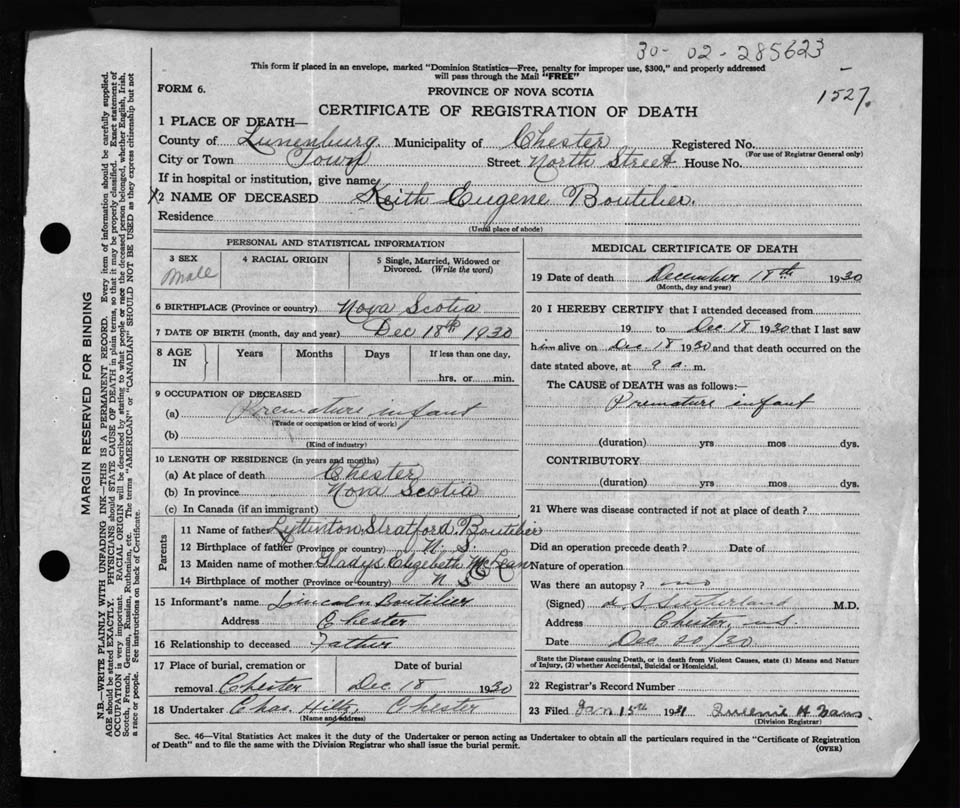 30-02-285623
This form if placed in an envelope, marked "Dominion Statistics—Free, penalty for improper use, $300," and properly addressed
will pass through the Mail "FREE"
FORM 6.
PROVINCE OF NOVA SCOTIA
1527.
CERTIFICATE OF REGISTRATION OF DEATH
1 PLACE OF DEATH—
County of Lunenburg Municipality of Chester Registered No.
(For use of Registrar General only)
City or Town Town Street North Street House No.
If in hospital or institution, give name
X2 NAME OF DECEASED Keith Eugene Boutilier.
Residence
(Usual place of abode)
PERSONAL AND STATISTICAL INFORMATION
3 SEX 4 RACIAL ORIGIN 5 Single, Married, Widowed or
Divorced. (Write the word)
Male
6 BIRTHPLACE (Province or country) Nova Scotia
7 DATE OF BIRTH (month, day and year) Dec 18th 1930
8 AGE IN Years Months Days If less than one day,
hrs. or min.
9 OCCUPATION OF DECEASED
(a) Premature infant
(Trade or occupation or kind of work)
(b)
(Kind of industry)
10 LENGTH OF RESIDENCE (in years and months)
(a) At place of death Chester
(b) In province Nova Scotia
(c) In Canada (if an immigrant)
Parents
11 Name of father Lyttinton Stratford Boutilier
12 Birthplace of father (Province or country) N. S.
13 Maiden name of mother Gladys Elizebeth
14 Birthplace of mother (Province or country) N S
15 Informant's name Lincoln Boutilier
Address Chester
16 Relationship to deceased Father
17 Place of burial, cremation or Date of burial
removal Chester Dec 18 1930
18 Undertaker Chas. Hiltz, Chester
(Name and address)
MEDICAL CERTIFICATE OF DEATH
19 Date of death December 18th 1930
(Month, day and year)
20 I HEREBY CERTIFY that I attended deceased from
19 to Dec 18 1930 that I last saw
him alive on Dec. 18 1930 and that death occurred on the
date stated above, at 9 a. m.
The CAUSE of DEATH was as follows:—
Premature infant
(duration) yrs mos dys.
CONTRIBUTORY
(duration) yrs mos dys.
21 Where was disease contracted if not at place of death?
Did an operation precede death? Date of
Nature of operation
Was there an autopsy? no
(Signed) Sutherland M.D.
Address Chester, N.S.
Date Dec 20/30
State the Disease causing Death, or in death from Violent Causes, state (1) Means and Nature
of Injury, (2) whether Accidental, Suicidal or Homicidal.
22 Registrar's Record Number
23 Filed Jan 15th 1931
(Division Registrar)
Sec. 46—Vital Statistics Act makes it the duty of the Undertaker or person acting as Undertaker to obtain all the particulars required in the "Certificate of Registration
of Death" and to file the same with the Division Registrar who shall issue the burial permit.
(OVER)
MARGIN RESERVED FOR BINDING
N.B.—WRITE PLAINLY WITH UNFADING INK—THIS IS A PERMANENT RECORD. Every item of information should be carefully supplied.
AGE should be stated EXACTLY. PHYSICIANS should STATE CAUSE OF DEATH in plain terms, so that it may be properly classified. Exact statement of
OCCUPATION is very important. RACIAL ORIGIN will be described by stating to what people or race the deceased person belonged, whether English, Irish,
Scotch, French, German, Russian, Ruthenian, etc. The terms "AMERICAN" or "CANADIAN" SHOULD NOT BE USED as they express citizenship but not
a race or people. See instructions on back of Certificate.